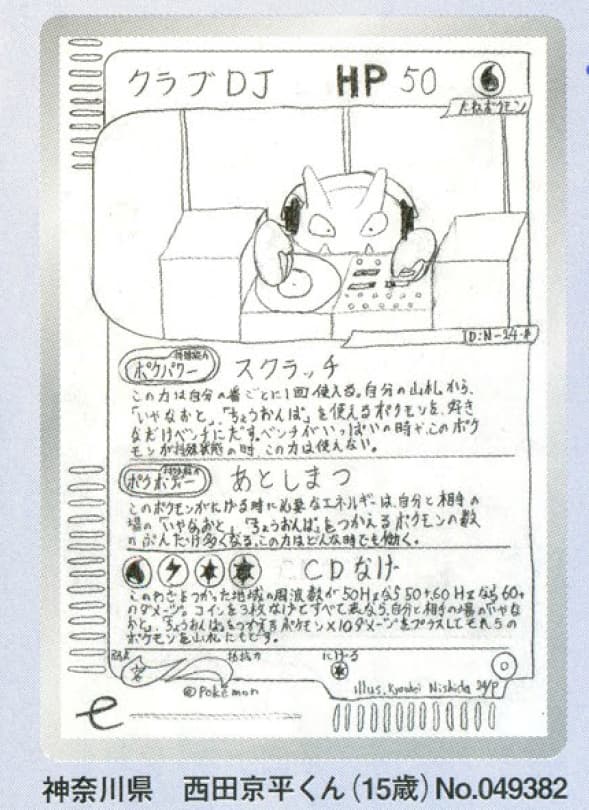 クラブDJ HP 50
たねポケモン
ID:N-24-#
ポケパワー 特殊能力 スクラッチ
この力は自分の番ごとに1回使える。自分の山札から、
「いやなおと」,「ちょうおんぱ」を使えるポケモンを、好き
なだけベンチにだす。ベンチがいっぱいの時や、このポケ
モンが特殊状態の時、この力は使えない。
ポケボディー 特殊能力 あとしまつ
このポケモンがにげる時に必要なエネルギーは、自分と相手の
場の「いやなおと」,「ちょうおんぱ」をつかえるポケモンの数
のぶんだけ多くなる。この力はどんな時でも働く。
CDなげ
このわざをつかった地域の周波数が50Hzなら50+60Hzなら60+
のダメージ。コインを3枚なげてすべて表なら、自分と相手の場の「いやな
おと」,「ちょうおんぱ」をつかえるポケモン×10ダメージをプラスしてそれらの
ポケモンを山札にもどす。
弱点 抵抗力 にげる
©Pokémon Illus. Kyouhei Nishida 24/P
e
神奈川県 西田京平くん(15歳)No.049382